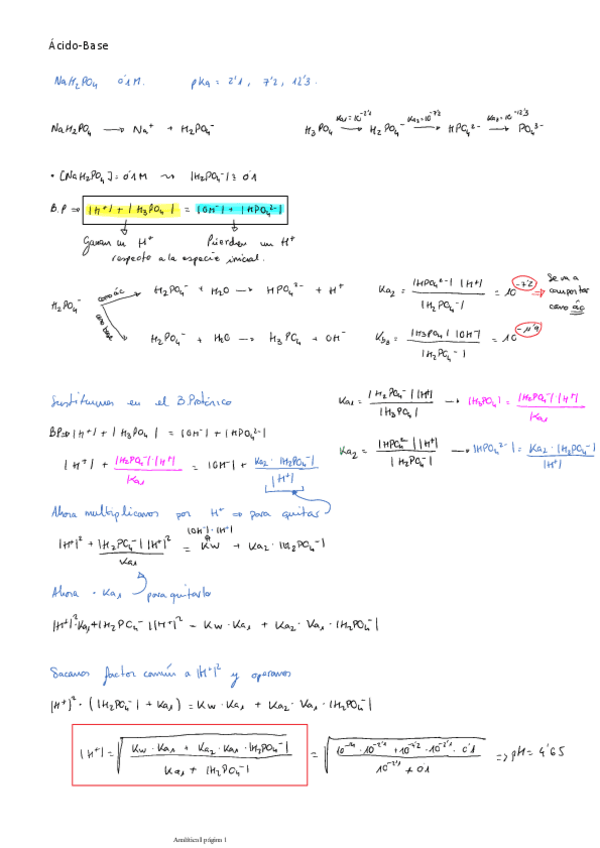 Ácido-Base
NaH₂PO₄ 0'1 M. pKa = 2'1, 7'2, 12'3.
NaH₂PO₄ ⟶ Na⁺ + H₂PO₄⁻
H₃PO₄ ⟶(Ka₁=10^-2'1) H₂PO₄⁻ ⟶(Ka₂=10^-7'2) HPO₄²⁻ ⟶(Ka₃=10^-12'3) PO₄³⁻
• [NaH₂PO₄] = 0'1 M ⇝ |H₂PO₄⁻| = 0'1
B.P ⇒ |H⁺| + |H₃PO₄| = |OH⁻| + |HPO₄²⁻|
Ganan un H⁺ Pierden un H⁺
respecto a la especie inicial.
H₂PO₄⁻
como ác H₂PO₄⁻ + H₂O ⟶ HPO₄²⁻ + H⁺ Ka₂ = |HPO₄²⁻| |H⁺| / |H₂PO₄⁻| = 10^-7'2 → Se va a comportar como ác
como base H₂PO₄⁻ + H₂O ⟶ H₃PO₄ + OH⁻ Kb₃ = |H₃PO₄| |OH⁻| / |H₂PO₄⁻| = 10^-11'9
Sustituimos en el B Protónico
Ka₁ = |H₂PO₄⁻| |H⁺| / |H₃PO₄| ⟶ |H₃PO₄| = |H₂PO₄⁻| |H⁺| / Ka₁
BP⇒ |H⁺| + |H₃PO₄| = |OH⁻| + |HPO₄²⁻|
Ka₂ = |HPO₄²⁻| |H⁺| / |H₂PO₄⁻| ⟶ |HPO₄²⁻| = Ka₂ · |H₂PO₄⁻| / |H⁺|
|H⁺| + |H₂PO₄⁻| |H⁺| / Ka₁ = |OH⁻| + Ka₂ · |H₂PO₄⁻| / |H⁺|
Ahora multiplicamos por H⁺ ⇒ para quitar
|OH⁻| · |H⁺|
|H⁺|² + |H₂PO₄⁻| |H⁺|² / Ka₁ = Kw + Ka₂ · |H₂PO₄⁻|
Ahora · Ka₁ para quitarlo
|H⁺|² · Ka₁ + |H₂PO₄⁻| |H⁺|² = Kw · Ka₁ + Ka₂ · Ka₁ · |H₂PO₄⁻|
Sacamos factor común a |H⁺|² y operamos
|H⁺|² · (|H₂PO₄⁻| + Ka₁) = Kw · Ka₁ + Ka₂ · Ka₁ · |H₂PO₄⁻|
|H⁺| = √(Kw · Ka₁ + Ka₂ · Ka₁ · |H₂PO₄⁻| / Ka₁ + |H₂PO₄⁻|) = √(10^-14 · 10^-2'1 + 10^-7'2 · 10^-2'1 · 0'1 / 10^-2'1 + 0'1) ⇒ pH = 4'65
Analítica II página 1